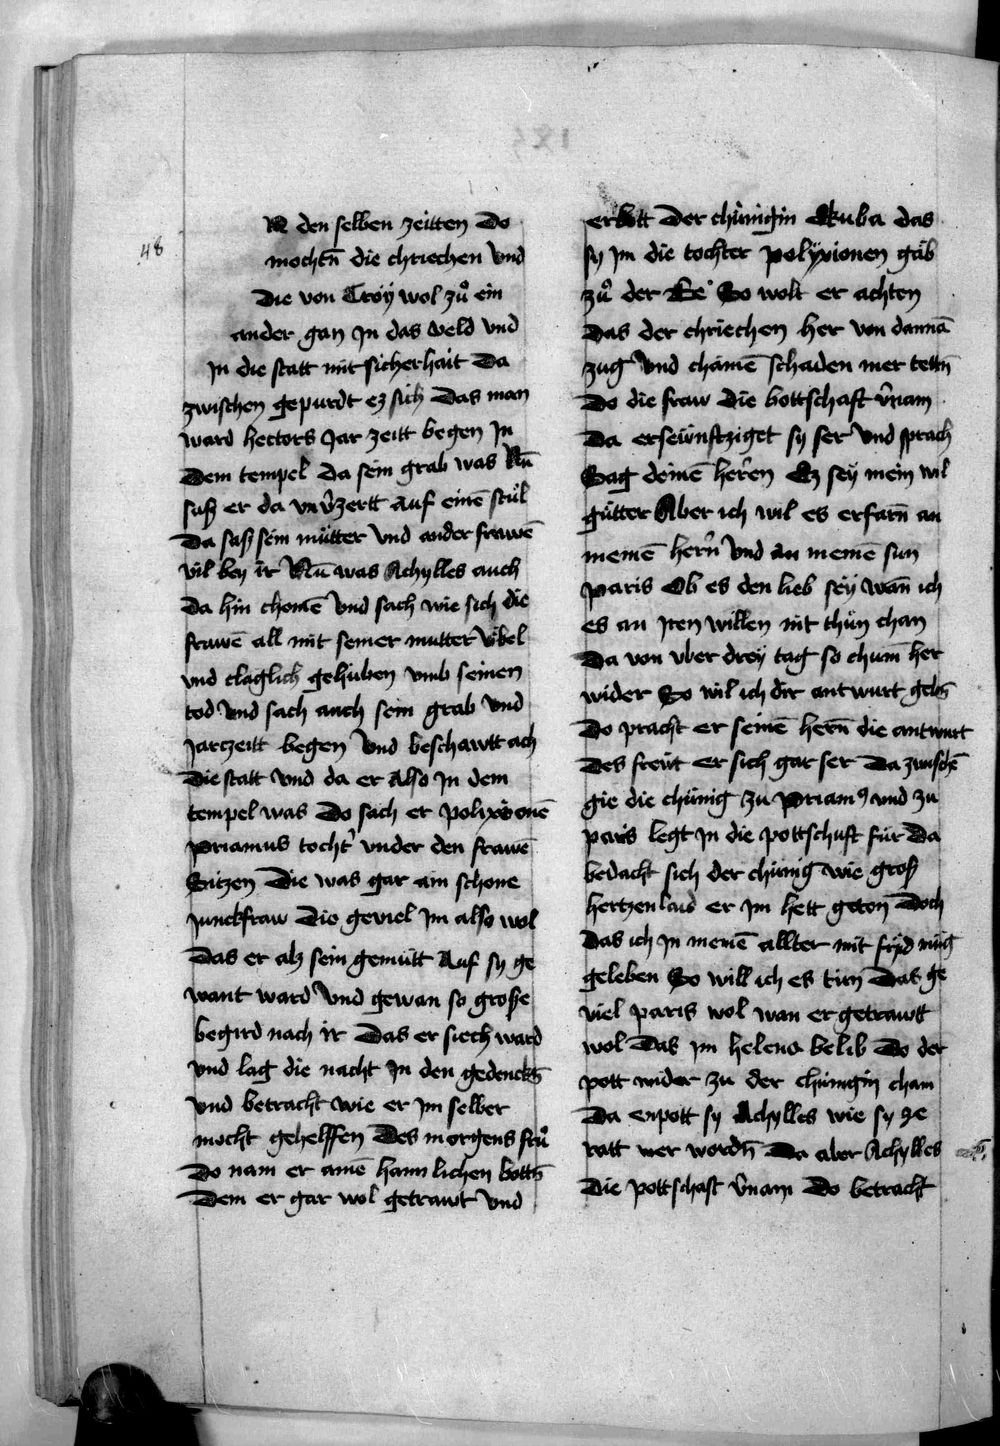 48
N den selben zeitten Do
mochtn̄ die chriechen Vnd
Die von Troÿ wol zuͦ ein
ander gan Jn das veld vnd
Jn die statt mit sicherhait Da
zwischen gepurdt eʒ sich Das man
ward hectors Jar zeitt begen Jn
Dem tempel Da sein grab was Nū
saß er da vnv̓zertt Auf einē stuͤl
Da saß sein muͤtter Vnd ander frawē
vil bey ir Nū was Achylles auch
Da hin chomē Vnd sach wie sich die
frawē all mit seiner mutter Vbel
vnd claglich gehuben vmb seinen
tod Vnd sach auch sein grab vnd
Jarczeitt begen Vnd beschawtt ach
Die statt Vnd da er Also Jn dem
tempel was Do sach er polixionē
Priamus tocht̓ vnder den frawē
Sitzen Die was gar ain schone
junckfraw Die geviel Jm also wol
Das er alʒ sein gemuͤtt Auf sy ge
want ward Vnd gewan so große
begird nach ir Das er siech ward
Vnd lag die nacht Jn den gedenckn̄
Vnd betracht wie er Jm selber
mocht gehelffen Des morgens fruͦ
Do nam er ainē haimlichen bottn̄
Dem er gar wol getrawt vnd
erbott Der chünigin Ekuba das
sy Jm die tochter polÿxionen gäb
zuͦ der Ee So wolt er achten
Das der chriechen her von dannā
zug Vnd chainē schaden mer tettn̄
Do die fraw Die bottschaft v̓nam
Da erseünftziget sy ser Vnd sprach
Sag deinē herren Eʒ seÿ mein wil
guͤtter Aber ich wil es erfarn̄ an
meinē hern̄ Vnd an meinē sun
paris Ob es den lieb seÿ wan̄ ich
es an Jren willen nit thuͤn chan
Da von vber dreÿ tag so chum̄ her
wider So wil ich dir antwurt gebn̄
Do pracht er seinē hern̄ die antwurt
Des freüt er sich gar ser Da zwischē
gie die chünig zu Priam⁹ vnd zu
paris legt Jn die pottschaft für Da
bedacht sich der chünig wie groß
hertzenlaid er Jm hett geton Doch
Das ich Jn meinē allter mit frÿd müg
geleben So will ich es tün Das ge
viel paris wol wan er getrawtt
wol Das Jm helena belib Do der
pott wider zu der chünigin cham
Da enpott sy Achylles wie sy ge
ratt wer wordn̄ Da aber Achylles
Die pottschaft v̓nam Do betracht